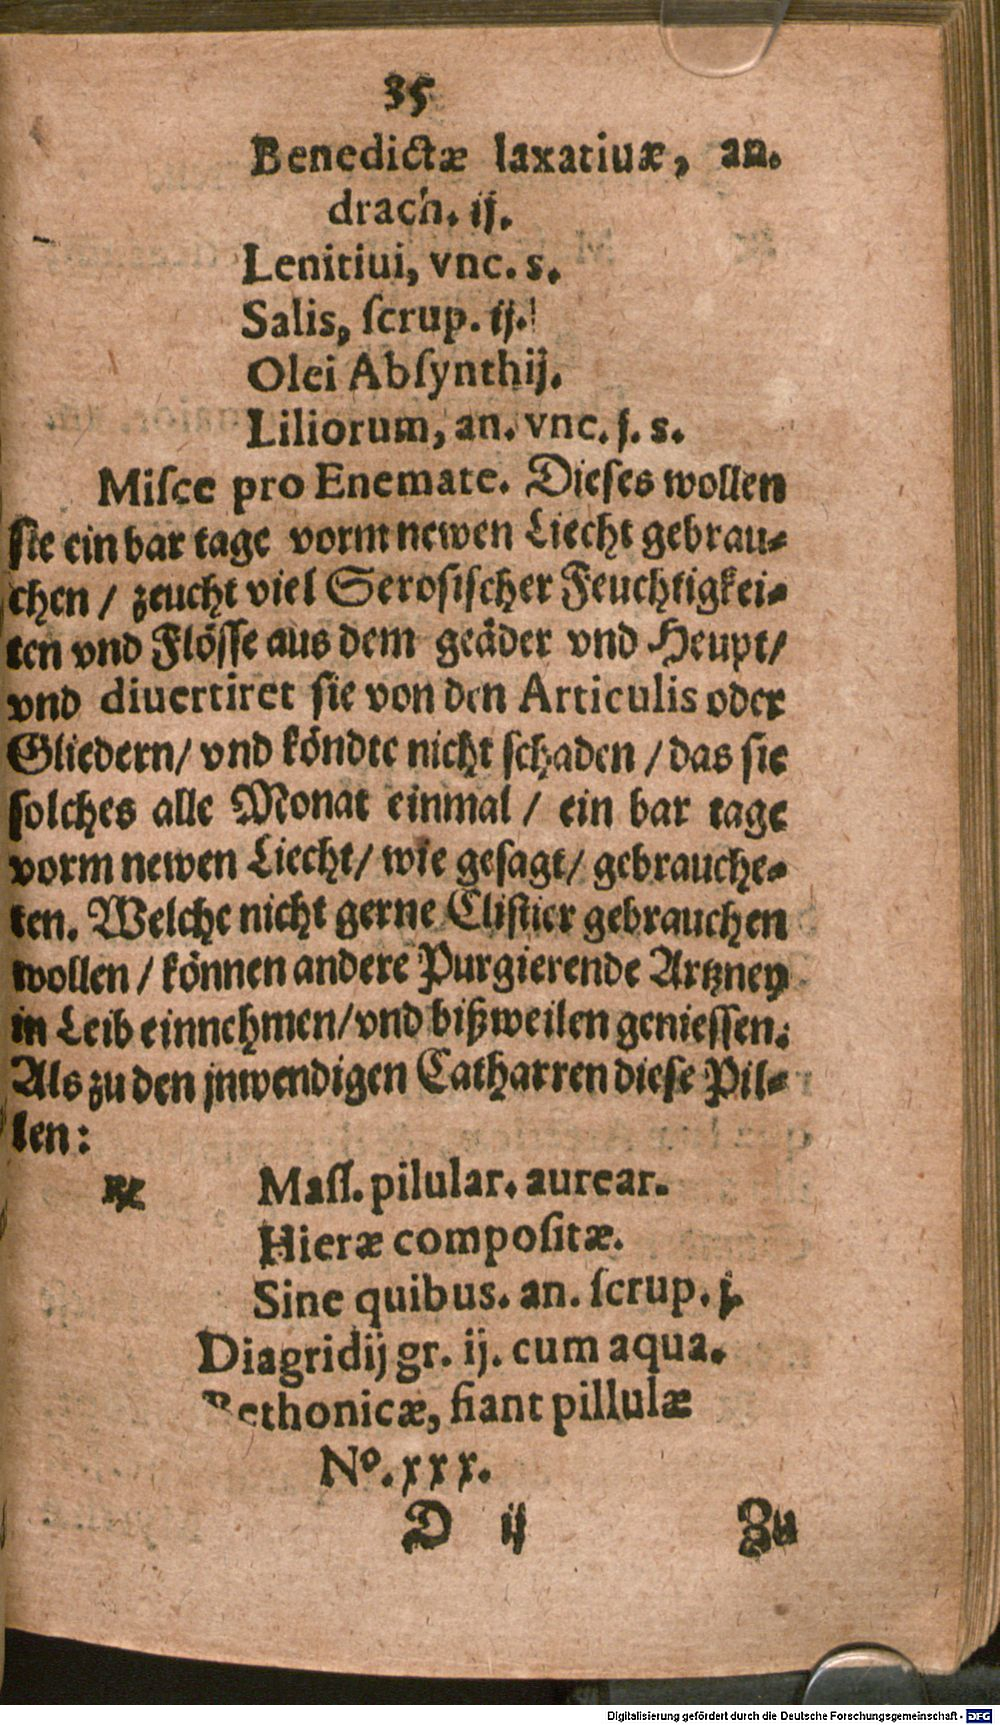 35
Benedictæ laxatiuæ, an.
drach. ij.
Lenitiui, vnc. s.
Salis, ſcrup. ij.
Olei Abſynthij.
Liliorum, an. vnc. j. s.
Miſce pro Enemate. Dieſes wollen
ſie ein bar tage vorm newen Liecht gebrau⸗
chen / zeucht viel Seroſiſcher Feuchtigkei⸗
ten vnd Flöſſe aus dem geäder vnd Heupt/
vnd divertiret ſie von den Articulis oder
Gliedern/ vnd köndte nicht ſchaden / das ſie
ſolches alle Monat einmal / ein bar tage
vorm newen Liecht/ wie geſagt/ gebrauche⸗
ten. Welche nicht gerne Cliſtier gebrauchen
wollen / können andere Purgierende Artzney
in Leib einnehmen/vnd bißweilen genieſſen.
Als zu den jnwendigen Catharren dieſe Pil⸗
len:
℞ Maſſ. pilular. aurear.
Hieræ compoſitæ.
Sine quibus. an. ſcrup. j.
Diagridij gr. ij. cum aqua.
Bethonicæ, fiant pillulæ
Nº. xxx.
D ij Zu
Digitalisierung gefördert durch die Deutsche Forschungsgemeinschaft - DFG